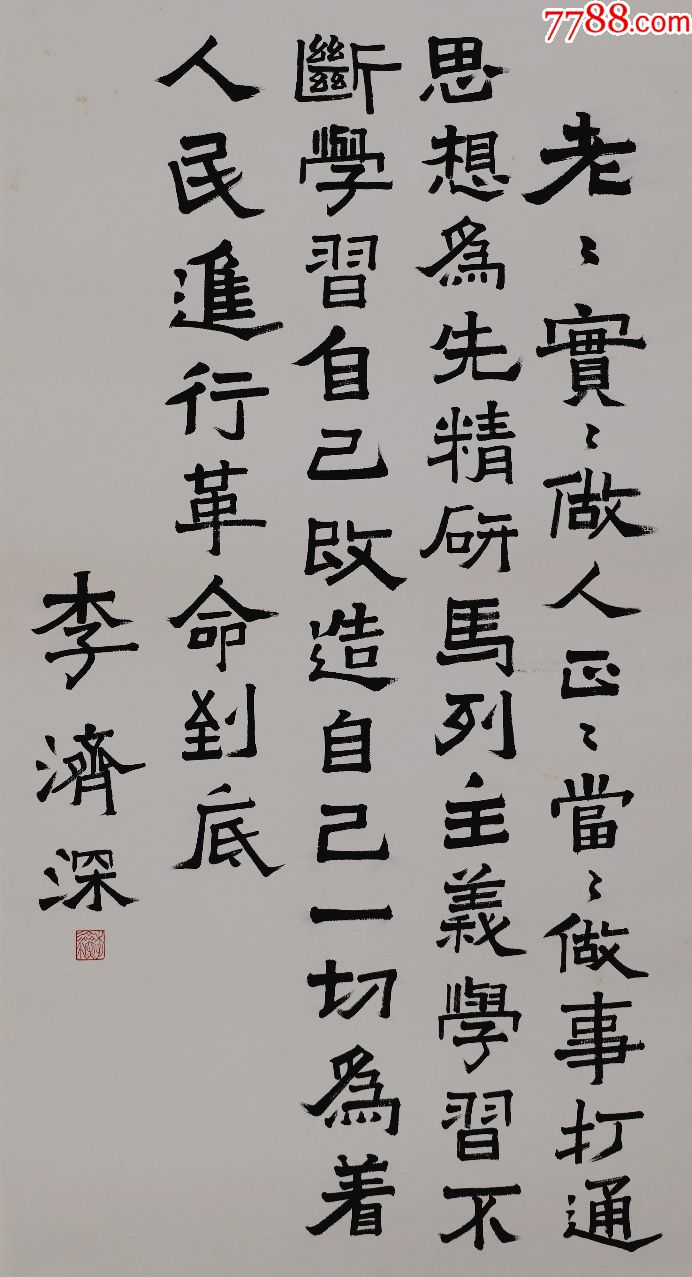 老〻實〻做人正〻當〻做事打通
思想為先精研馬列主義學習不
斷學習自己改造自己一切為着
人民進行革命到底
李濟深
7788.com